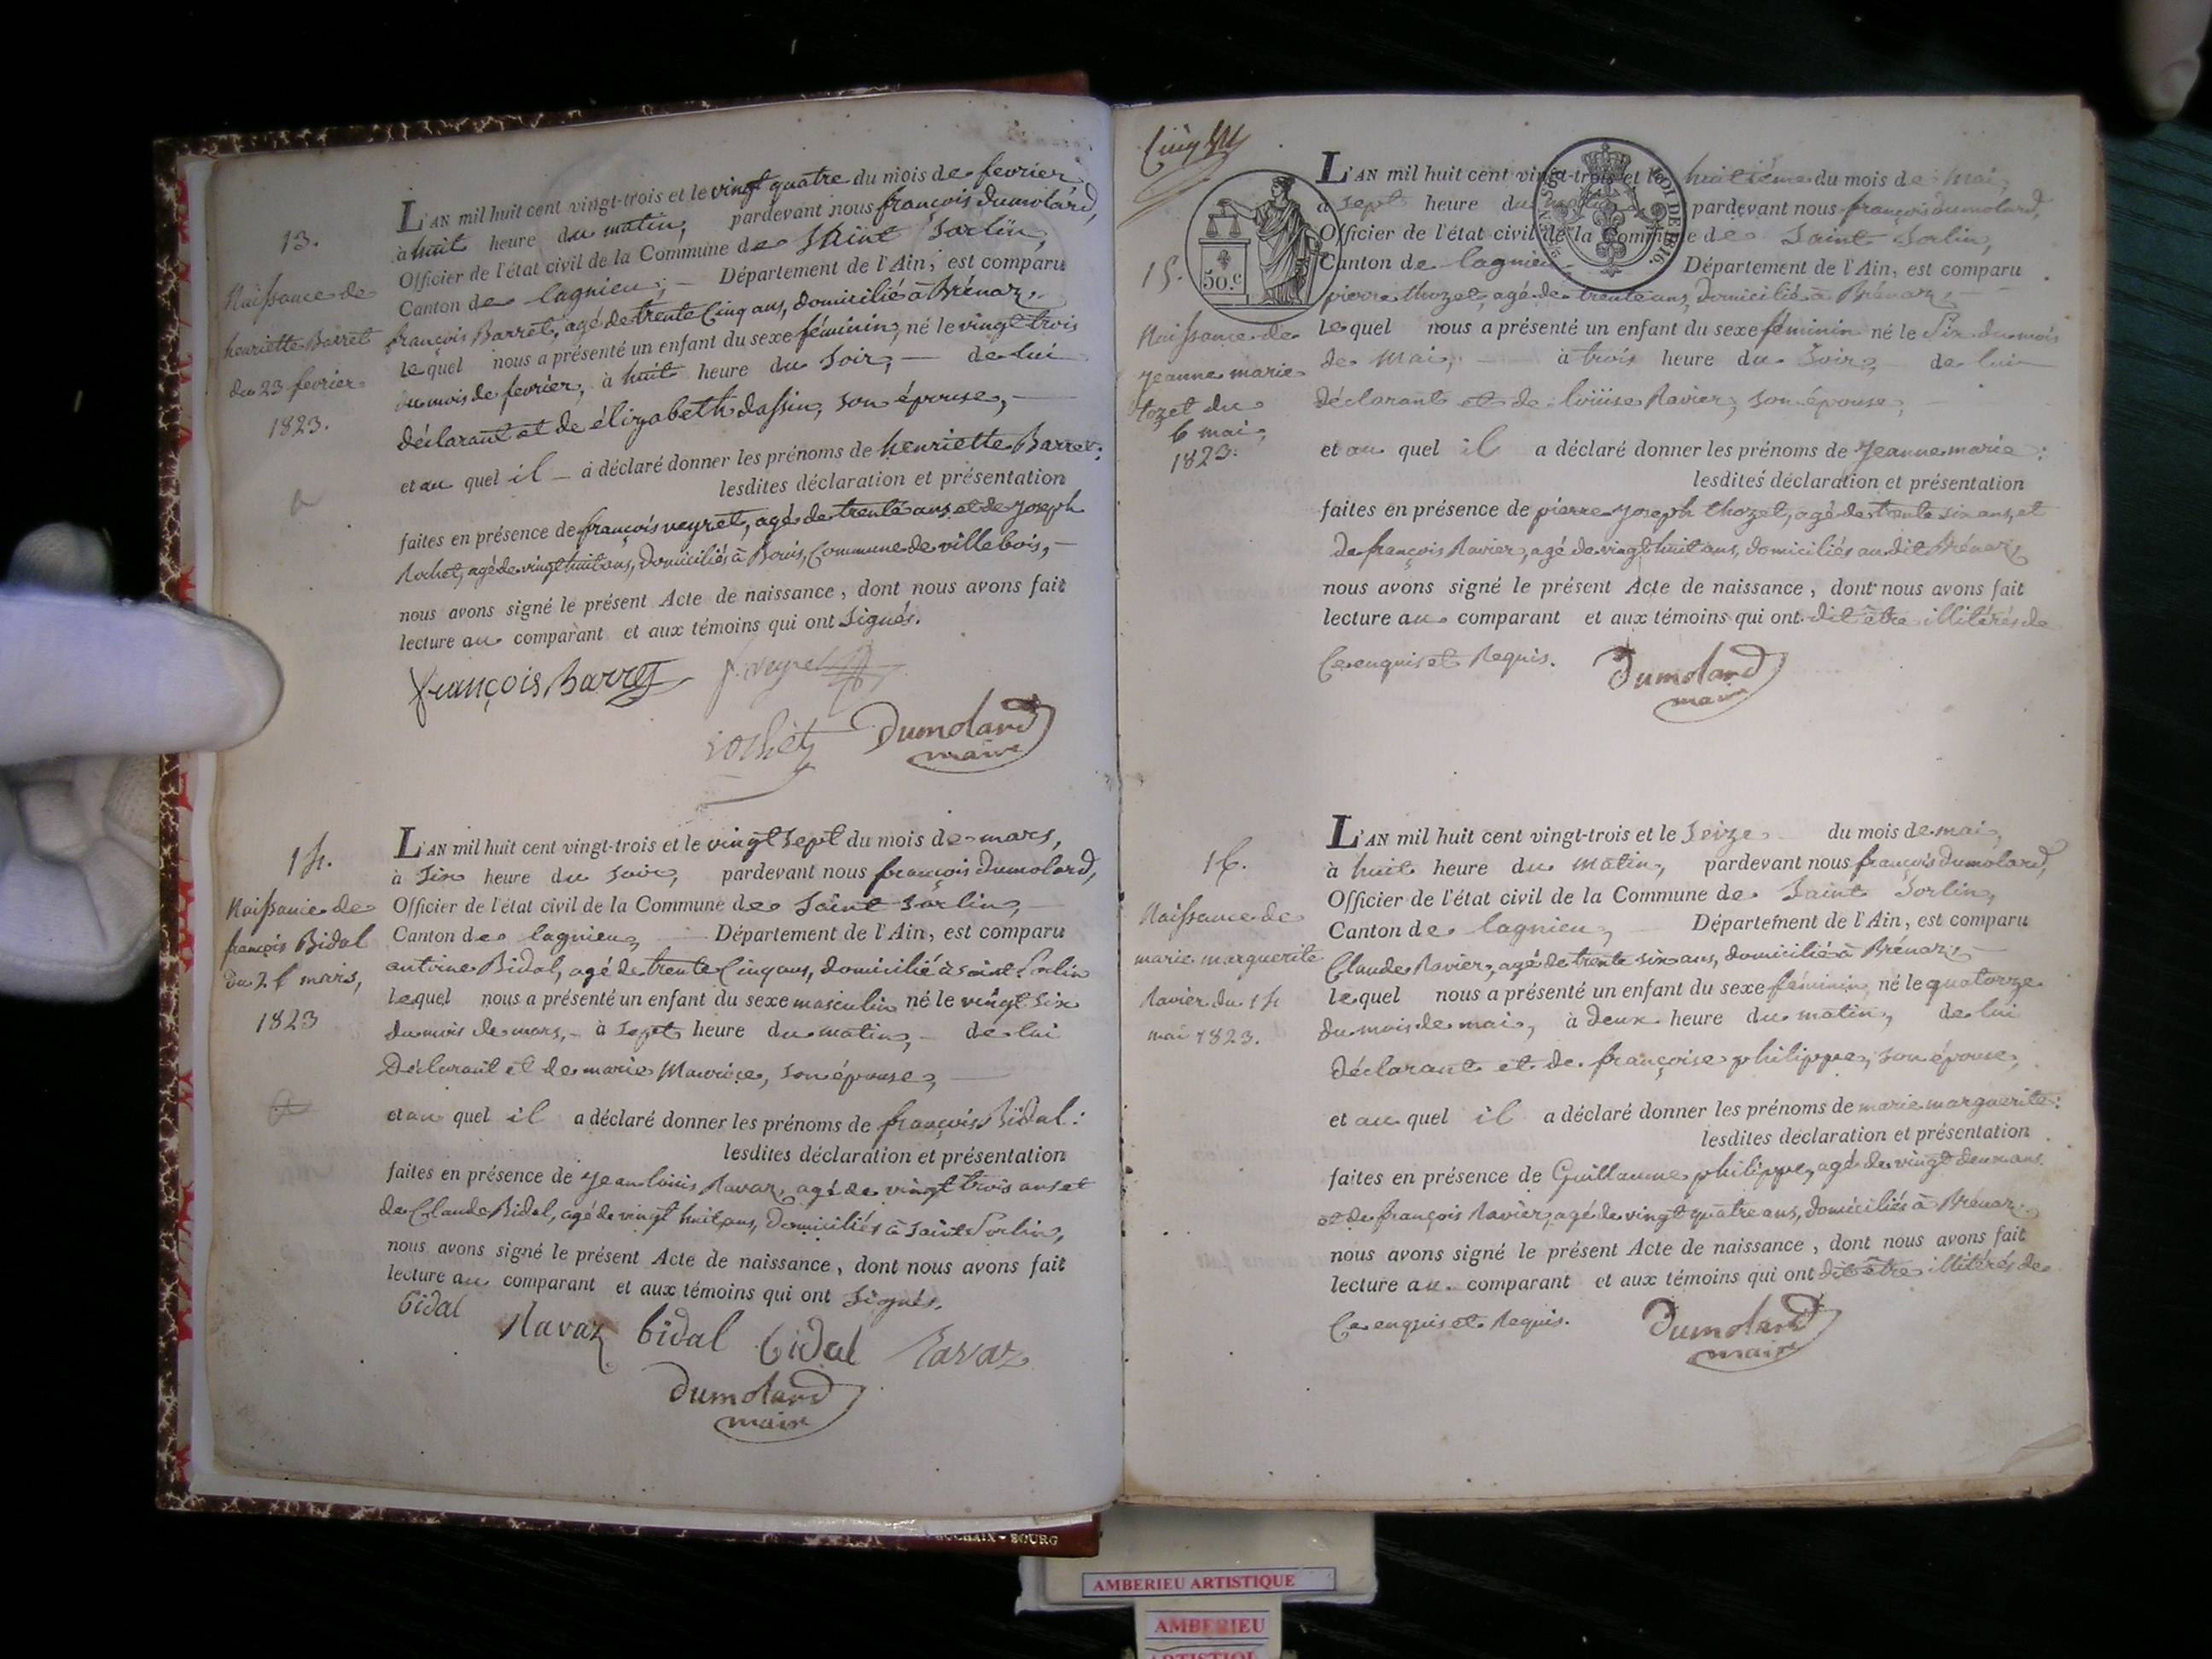 13.
Naissance de
henriette Barret
du 23 fevrier
1823.
L'AN mil huit cent vingt-trois et le vingt quatre du mois de fevrier
à huit heure du matin, pardevant nous françois dumolard,
Officier de l'état civil de la Commune de Saint Sorlin,
Canton de lagnieu, Département de l'Ain, est comparu
françois Barret, agé de trente Cinq ans, domicilié à Brénaz,
lequel nous a présenté un enfant du sexe féminin, né le vingt trois
du mois de fevrier, à huit heure du Soir, de lui
déclarant et de élizabeth dassin, son épouse,
et au quel il a déclaré donner les prénoms de henriette Barret:
lesdites déclaration et présentation
faites en présence de françois veyret, agé de trente ans et de Joseph
Rochet, agé de vingt huit ans, domiciliés à Bouis, Commune de villebois,
nous avons signé le présent Acte de naissance, dont nous avons fait
lecture au comparant et aux témoins qui ont Signés.
françois Barret f. veyret
rochet Dumolard
maire
14.
Naissance de
françois Bidal
du 26 mars,
1823
L'AN mil huit cent vingt-trois et le vingt Sept du mois de mars,
à Six heure du Soir, pardevant nous françois dumolard,
Officier de l'état civil de la Commune de Saint Sorlin,
Canton de lagnieu, Département de l'Ain, est comparu
antoine Bidal, agé de trente Cinq ans, domicilié à saint Sorlin
lequel nous a présenté un enfant du sexe masculin né le vingt Six
du mois de mars, à Sept heure du matin, de lui
Déclarant et de marie Maurice, son épouse,
et au quel il a déclaré donner les prénoms de françois Bidal:
lesdites déclaration et présentation
faites en présence de Jean louis Ravaz, agé de vingt trois ans et
de Claude Bidal, agé de vingt huit ans, Domiciliés à Saint Sorlin,
nous avons signé le présent Acte de naissance, dont nous avons fait
lecture au comparant et aux témoins qui ont Signés.
bidal Ravaz bidal bidal Ravaz
Dumolard
maire
15.
Naissance de
Jeanne marie
tozet du
6 mai,
1823.
50.c
L'AN mil huit cent vingt-trois et le huitième du mois de Mai,
à Sept heure du matin pardevant nous françois dumolard,
Officier de l'état civil de la Commune de Saint Sorlin,
Canton de lagnieu, Département de l'Ain, est comparu
pierre thozet, agé de trente ans, domicilié à Brénaz,
lequel nous a présenté un enfant du sexe féminin né le Six du mois
de Mai, à trois heure du Soir, de lui
déclarant et de loüise Ravier, son épouse,
et au quel il a déclaré donner les prénoms de Jeanne marie:
lesdites déclaration et présentation
faites en présence de pierre Joseph thozet, agé de trente six ans, et
de françois Ravier, agé de vingt huit ans, domiciliés au dit Brénaz,
nous avons signé le présent Acte de naissance, dont nous avons fait
lecture au comparant et aux témoins qui ont dit être illitérés de
Ce enquis et Requis. Dumolard
maire
16.
Naissance de
marie marguerite
Ravier du 14
mai 1823.
L'AN mil huit cent vingt-trois et le Seize du mois de mai,
à huit heure du matin, pardevant nous françois dumolard,
Officier de l'état civil de la Commune de Saint Sorlin,
Canton de lagnieu, Département de l'Ain, est comparu
Claude Ravier, agé de trente six ans, domicilié à Brénaz,
lequel nous a présenté un enfant du sexe féminin, né le quatorze
du mois de mai, à deux heure du matin, de lui
déclarant et de françoise philippe, son épouse,
et au quel il a déclaré donner les prénoms de marie marguerite:
lesdites déclaration et présentation
faites en présence de Guillaume philippe, agé de vingt deux ans
et de françois Ravier, agé de vingt quatre ans, domiciliés à Brénaz,
nous avons signé le présent Acte de naissance, dont nous avons fait
lecture au comparant et aux témoins qui ont dit être illitérés de
Ce enquis et Requis. Dumolard
maire
BOURG
AMBERIEU ARTISTIQUE
AMBERIEU
ARTISTIQUE